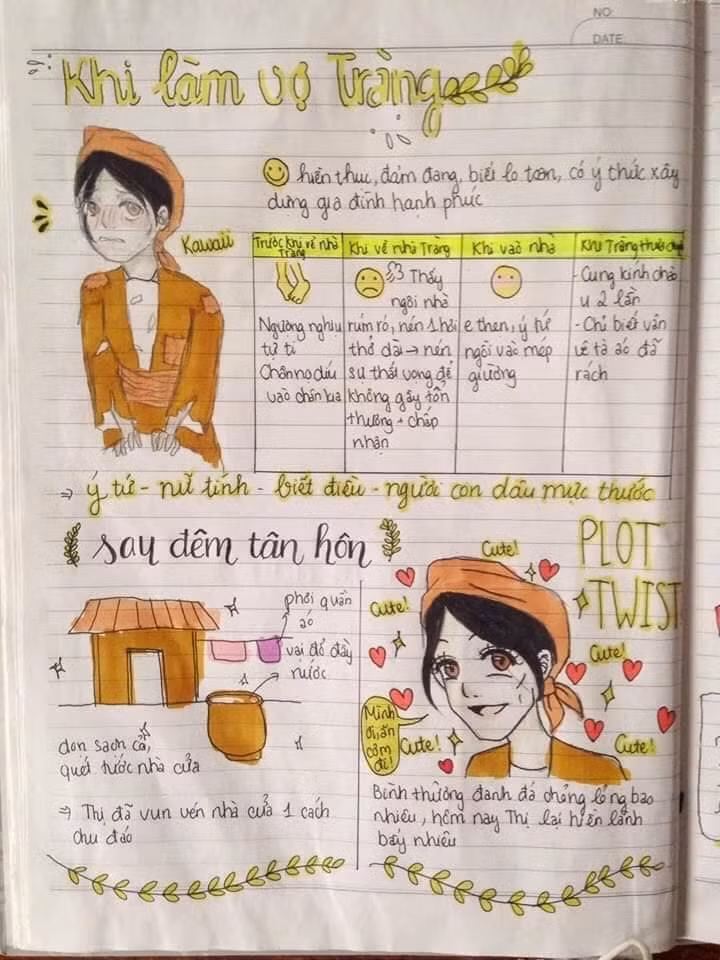 NO:
DATE:
Khi làm vợ Tràng
hiền thục, đảm đang, biết lo toan, có ý thức xây
dựng gia đình hạnh phúc
Kawaii
Trước khi về nhà
Tràng
Ngượng nghịu
tự ti
Chân nọ díu
vào chân kia
Khi về nhà Tràng
Thấy
ngôi nhà
rúm ró, nén 1 hơi
thở dài → nén
sự thất vọng để
không gây tổn
thương + chấp
nhận
Khi vào nhà
e thẹn, ý tứ
ngồi vào mép
giường
Khi Tràng thưa chuyện
- Cung kính chào
u 2 lần
- Chỉ biết vân
vê tà áo đã
rách
⇒ ý tứ - nữ tính - biết điều - người con dâu mực thước
sau đêm tân hôn
phơi quần
áo
vại đổ đầy
nước
dọn sạch cỏ,
quét tước nhà cửa
⇒ Thị đã vun vén nhà cửa 1 cách
chu đáo
PLOT
TWIST
Cute!
Cute!
Cute!
Cute!
Cute!
Mình
ơi, ăn
cơm
đi!
Bình thường đanh đá chỏng lỏng bao
nhiêu, hôm nay Thị lại hiền lành
bấy nhiêu